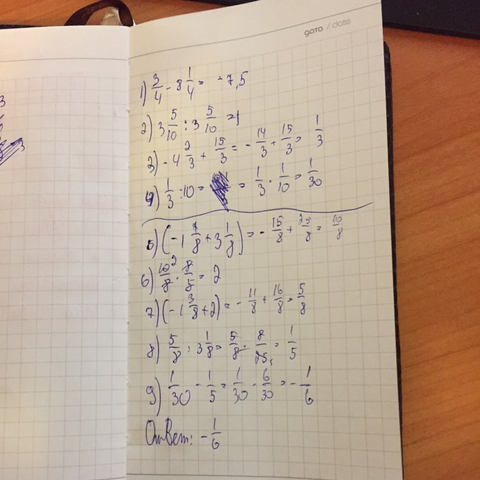 дата / date
1) 3/4 - 8 1/4 = -7,5
2) 3 5/10 : 3 5/10 = 1
3) -4 2/3 + 15/3 = -14/3 + 15/3 = 1/3
4) 1/3 : 10 = = 1/3 · 1/10 = 1/30
5) (-1 7/8 + 3 1/8) = -15/8 + 25/8 = 10/8
6) 10/8 · 8/5 = 2
7) (-1 3/8 + 2) = -11/8 + 16/8 = 5/8
8) 5/8 : 3 1/8 = 5/8 · 8/25 = 1/5
9) 1/30 - 1/5 = 1/30 - 6/30 = -1/6
Ответ: -1/6